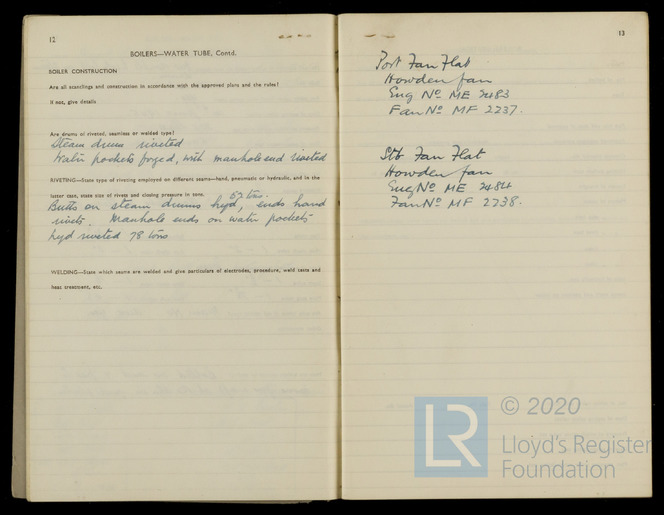 12
BOILERS—WATER TUBE, Contd.
BOILER CONSTRUCTION
Are all scantlings and construction in accordance with the approved plans and the rules?
If not, give details
Are drums of riveted, seamless or welded type?
Steam drum riveted
Water pockets forged, with manhole end riveted
RIVETING—State type of riveting employed on different seams—hand, pneumatic or hydraulic, and in the
latter case, state size of rivets and closing pressure in tons.
67 tons.
Butts on steam drums hyd, ends hand
rivets. Manhole ends on water pockets
hyd riveted 78 tons
WELDING—State which seams are welded and give particulars of electrodes, procedure, weld tests and
heat treatment, etc.
13
Port Fan Flat
Howden fan
Eng No ME 2483
Fan No MF 2237.
Stb Fan Flat
Howden fan
Eng No ME 2484
Fan No MF 2238.
LR
© 2020
Lloyd's Register
Foundation